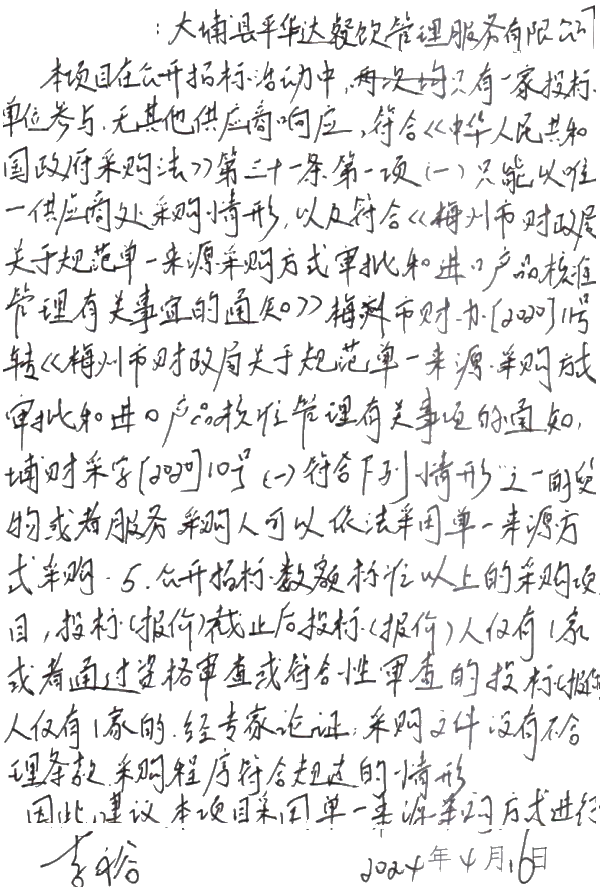 :大埔县平华达餐饮管理服务有限公司
本项目在公开招标活动中,两次均只有一家投标
单位参与.无其他供应商响应,符合《中华人民共和
国政府采购法》第三十一条第一项(一)只能从唯
一供应商处采购情形,以及符合《梅州市财政局
关于规范单一来源采购方式审批和进口产品核准
管理有关事宜的通知》梅州市财办[2020]11号
转《梅州市财政局关于规范单一来源采购方式
审批和进口产品核准管理有关事项的通知,
埔财采字[2020]10号(一)符合下列情形之一的货
物或者服务采购人可以依法采用单一来源方
式采购.5.公开招标数额标准以上的采购项
目,投标(报价)截止后投标(报价)人仅有1家
或者通过资格审查或符合性审查的投标(报价
人仅有1家的.经专家论证,采购文件没有不合
理条款采购程序符合规定的情形
因此,建议本项目采用单一来源采购方式进行
李裕
2024年4月16日